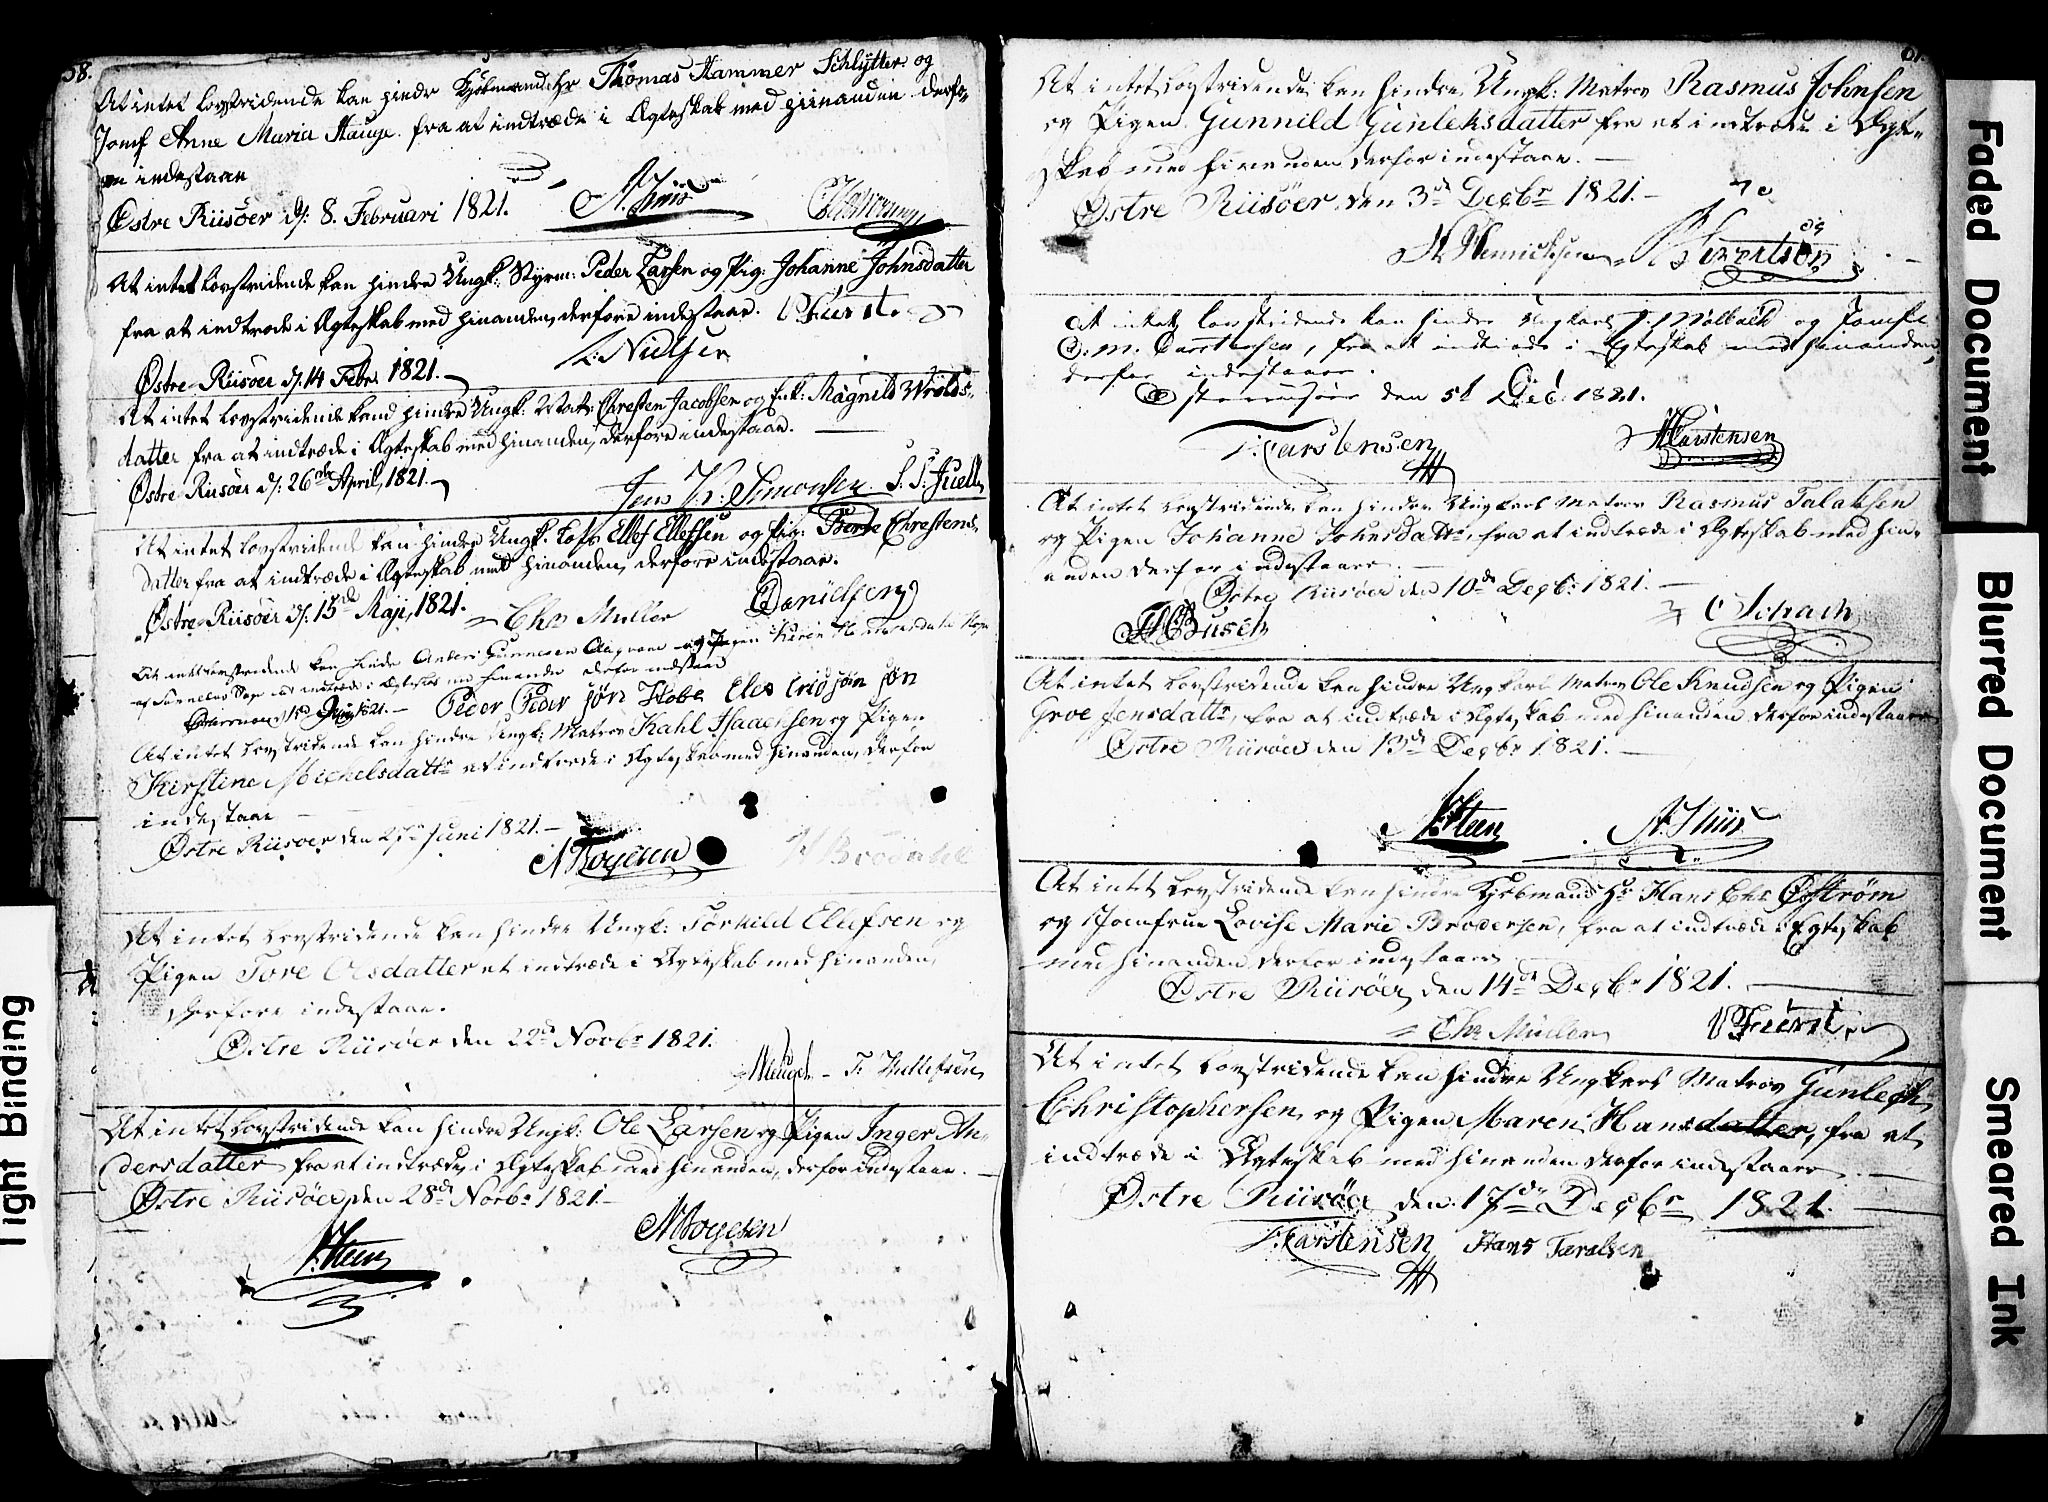 58.
At intet lovstridende kan hindr Kjöbmand Hr Thomas Hammer Schlytter og
Jomf Anne Maria Hauge fra at indtræde i Ægteskab med hiinanden derfo-
indestaae
Østre Riisöer d: 8. Februari 1821.
At intet lovstridende kan hindre Ungk: Styrm: Peder Larsen og Pig: Johanne Johnsdatter
fra at indtræde i Ægteskab med hinanden, derfore indestaar. Fürst
Østre Riisöer d: 14 Febr. 1821. L: Nielsen
At intet lovstridende kand hindre Ungk: Matr: Chresten Jacobsen og Enk: Magnild Wrolds-
datter fra at indtræde i Ægteskab med hinanden, derfore indestaar.
Østre Riisöer d: 26de April, 1821. Jens Chr: Simonsen. S. S. Juell
At intet lovstridende kan hindre Ungk. Lods Ellef Ellefsen og Pig: Berte Chrestens-
datter fra at indtræde i Ægteskab med hinanden, derfore indestaar.
Østre Riisöer d: 15de Maji, 1821. Chr Muller Danielsen
At intet lovstridende kan hindre Anders Gunnesen og Pigen
at indtræde i Ægteskab med hinanden derfor indestaar
1821. Peder Peder Søn
At intet lovstridende kan hindre Ungk: Matros Kahl Isaachsen og Pigen
Kirstine Michelsdattr at indtræde i Ægteskab med hinanden, derfor
indestaar
Østre Riisoer den 27de Juni 1821. N Boyesen H Brodahl
At intet lovstridende kan hindre Ungk: Torkild Ellefsen og
Pigen Tore Olsdatter at indtræde i Ægteskab med hinanden,
derfore indestaar.
Østre Riisöer den 22de Novbr 1821.
T. Thellefsen
At intet lovstridende kan hindre Ungk: Ole Larsen og Pigen Inger An-
dersdatter fra at indtræde i Ægteskab med hinanden, derfor indestaar.
Østre Riisöer den 28de Novbr 1821
Steen N Boyesen
At intet lovstridende kan hindre Ungk: Matros Rasmus Johnsen
og Pigen Gunnild Gunleksdatter fra at indtræde i Ægte-
skab med hinanden derfor indestaar.
Østre Riisöer den 3de Decbr 1821.
H Hennichsen Sivertsen
At intet lovstridende kan hindre Ungkarl J. Molbach og Jomfr
D. M. Carstensen, fra at indtræde i Egteskab med hinanden,
derfor indestaar.
Østerriisöer den 5t Dec: 1821.
T: Carstensen H Carstensen
At intet lovstridende kan hindre Ungkarl Matros Rasmus Talaksen
og Pigen Johanne Johnsdattr, fra at indtræde i Ægteskab med hin-
anden derfor indestaar.
Østre Riisöer den 10de Decbr 1821.
H Busch C Schach
At intet lovstridende kan hindre Ungkarl Matros Ole Knudsen og Pigen
Groe Jensdattr, fra at indtræde i Ægteskab med hinanden derfor indestaar
Østre Riisöer den 13de Decbr 1821.
Steen N. Thiis
At intet lovstridende kan hindre Kjöbmand Hr Hans Chr Øström
og Jomfrue Lovise Marie Brodersen, fra at indtræde i Egteskab
med hinanden derfor indestaar
Østre Riisöer den 14de Decbr 1821.
Chr Müller Fürst
At intet lovstridende kan hindre Ungkarl Matros Gunlech
Christophersen og Pigen Maren Hansdatter, fra at
indtræde i Ægteskab med hinanden derfor indestaar
Østre Riisöer den 17de Decbr 1821.
T: Carstensen Hans Taralsen
Tight Binding
Faded Document
Blurred Document
Smeared Ink